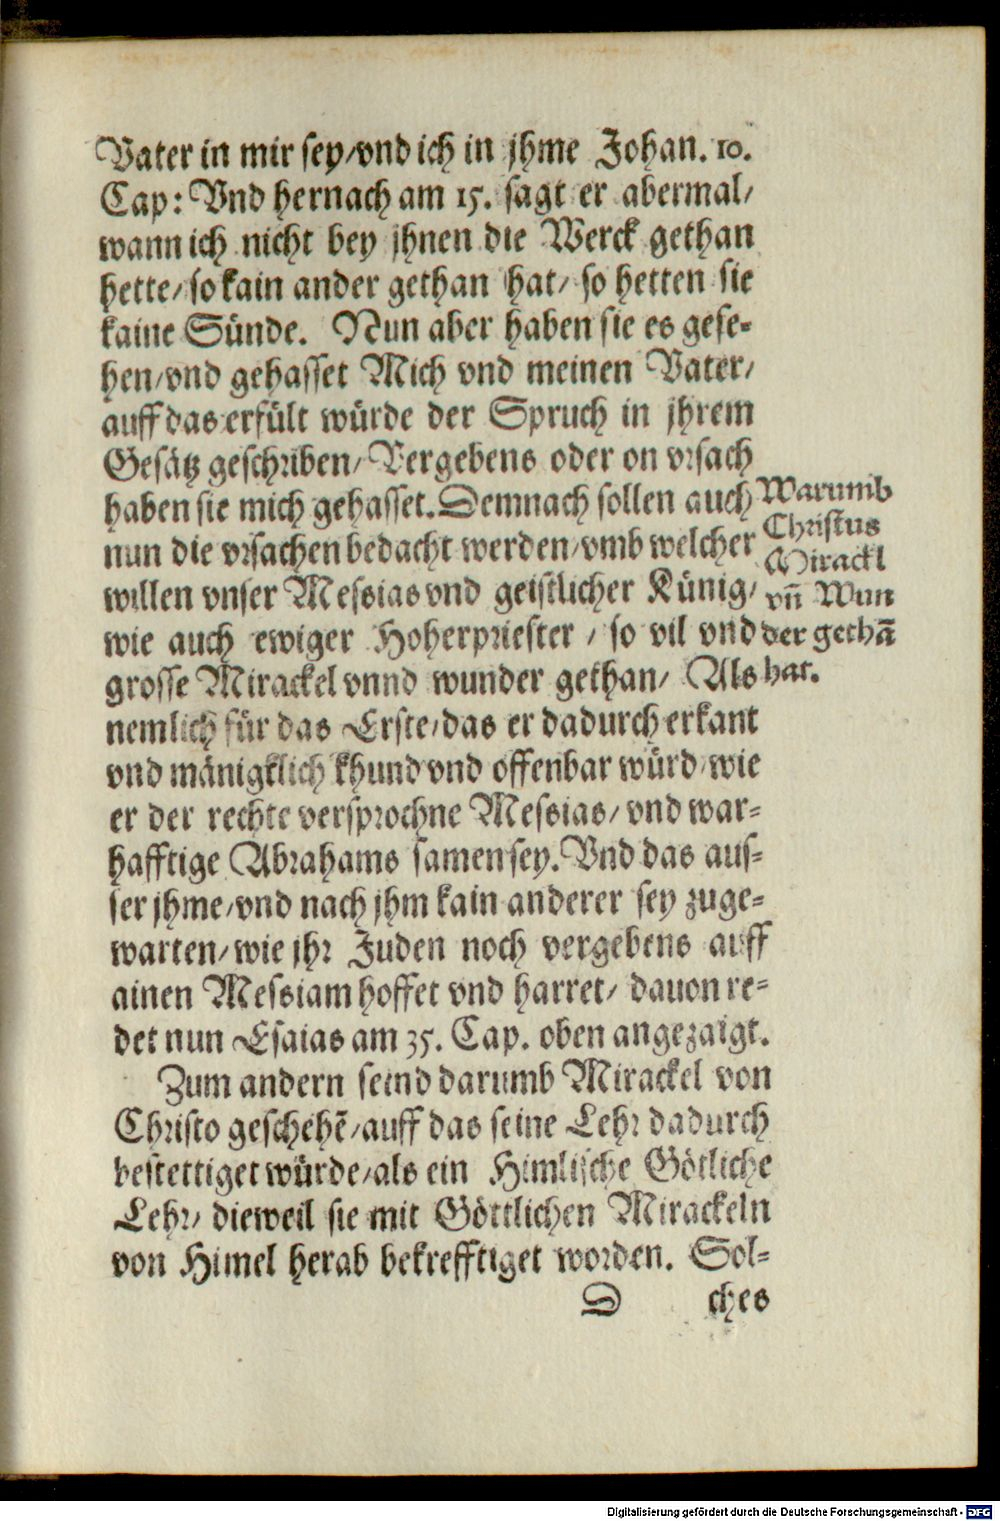 Vater in mir sey/vnd ich in jhme Johan. 10.
Cap: Vnd hernach am 15. sagt er abermal/
wann ich nicht bey jhnen die Werck gethan
hette/ so kain ander gethan hat/ so hetten sie
kaine Sünde. Nun aber haben sie es gese-
hen/vnd gehasset Mich vnd meinen Vater/
auff das erfült würde der Spruch in jhrem
Gesätz geschriben/ Vergebens oder on vrsach
haben sie mich gehasset. Demnach sollen auch
nun die vrsachen bedacht werden/vmb welcher
willen vnser Messias vnd geistlicher Künig/
wie auch ewiger Hoherpriester / so vil vnd
grosse Mirackel vnnd wunder gethan/ Als
nemlich für das Erste/das er dadurch erkant
vnd mänigklich khund vnd offenbar würd/wie
er der rechte versprochne Messias/ vnd war-
hafftige Abrahams samen sey. Vnd das aus-
ser jhme/vnd nach jhm kain anderer sey zuge-
warten/wie jhr Juden noch vergebens auff
ainen Messiam hoffet vnd harret/ dauon re-
det nun Esaias am 35. Cap. oben angezaigt.
Zum andern seind darumb Mirackel von
Christo geschehẽ/auff das seine Lehr dadurch
bestettiget würde/als ein Himlische Götliche
Lehr/ dieweil sie mit Göttlichen Mirackeln
von Himel herab bekrefftiget worden. Sol-
D ches
Warumb
Christus
Mirackl
vñ Wun
der gethã
hat.
Digitalisierung gefördert durch die Deutsche Forschungsgemeinschaft - DFG